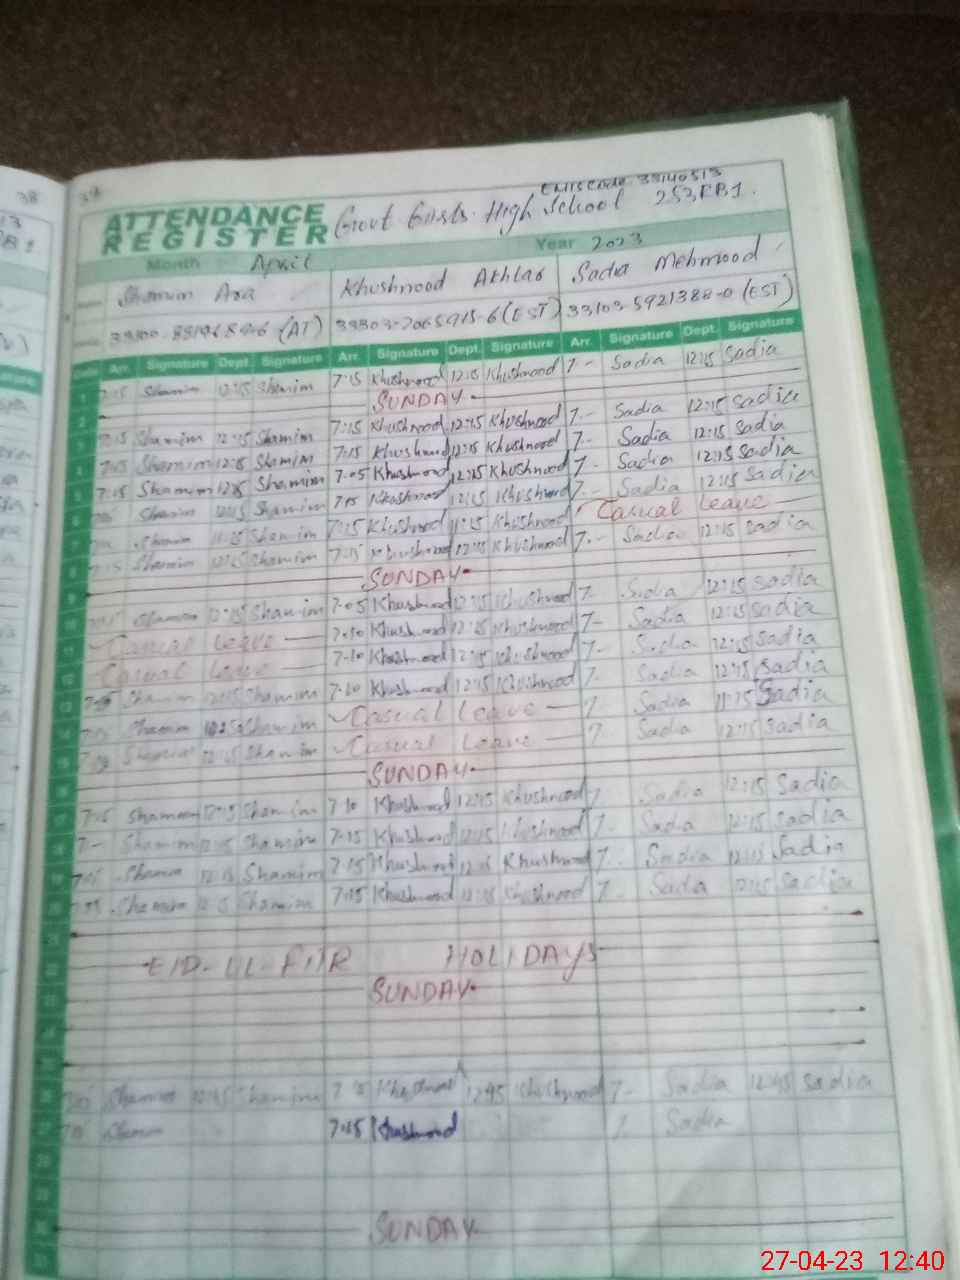 38
39
EMIS Code 33140513
ATTENDANCE REGISTER Govt Girls High School 253, RB1.
Month April Year 2023
Khushnood Akhtar Sadia Mehmood
(AT) (EST) (EST)
Arr. Signature Dept. Signature Arr. Signature Dept. Signature Arr. Signature Dept. Signature
1 7:15 Shamim 12:15 Shamim 7:15 Khushnood 12:15 Khushnood 7- Sadia 12:15 Sadia
2 SUNDAY
7:15 Shamim 12:15 Shamim 7:15 Khushnood 12:15 Khushnood 7.- Sadia 12:15 Sadia
4 Shamim 12:15 Shamim 7:15 Khushnood 12:15 Khushnood 7- Sadia 12:15 Sadia
5 7:15 Shamim 12:15 Shamim 7-05 Khushnood 12:15 Khushnood 7- Sadia 12:15 Sadia
6 Shamim 12:15 Shamim Khushnood 12:15 Khushnood 7.- Sadia 12:15 Sadia
7 Shamim 11:15 Shamim 7:15 Khushnood 11:15 Khushnood Casual Leave
8 7:15 Shamim 12:15 Shamim 7:15 Khushnood 12:15 Khushnood 7.- Sadia 12:15 Sadia
9 SUNDAY
10 Shamim 12:15 Shamim 7-05 Khushnood 12:15 Khushnood 7- Sadia 12:15 Sadia
11 Casual Leave 7-10 Khushnood 12:15 Khushnood 7- Sadia 12:15 Sadia
12 Casual Leave 7-10 Khushnood 12:15 Khushnood 7- Sadia 12:15 Sadia
13 Shamim 12:15 Shamim 7-10 Khushnood 12:15 Khushnood 7- Sadia 12:15 Sadia
14 Shamim Shamim Casual Leave 7 Sadia 11:15 Sadia
15 Shamim 12:15 Shamim Casual Leave 7 Sadia 12:15 Sadia
16 SUNDAY
17 7:15 Shamim 12:15 Shamim 7-10 Khushnood 12:15 Khushnood 7 Sadia 12:15 Sadia
18 7- Shamim 12:15 Shamim 7-15 Khushnood 12:15 Khushnood 7 Sadia 12:15 Sadia
19 Shamim 12:15 Shamim 7:15 Khushnood Khushnood 7. Sadia Sadia
20 Shamim Shamim 7:15 Khushnood 12:15 Khushnood 7- Sadia 12:15 Sadia
21
22 EID-UL-FITR HOLIDAYS
23 SUNDAY
24
25
26 Shamim 12:45 Shamim Khushnood 12:45 Khushnood 7- Sadia 12:45 Sadia
27 Shamim 7:15 Khushnood 7 Sadia
28
29
30 SUNDAY
31
27-04-23 12:40